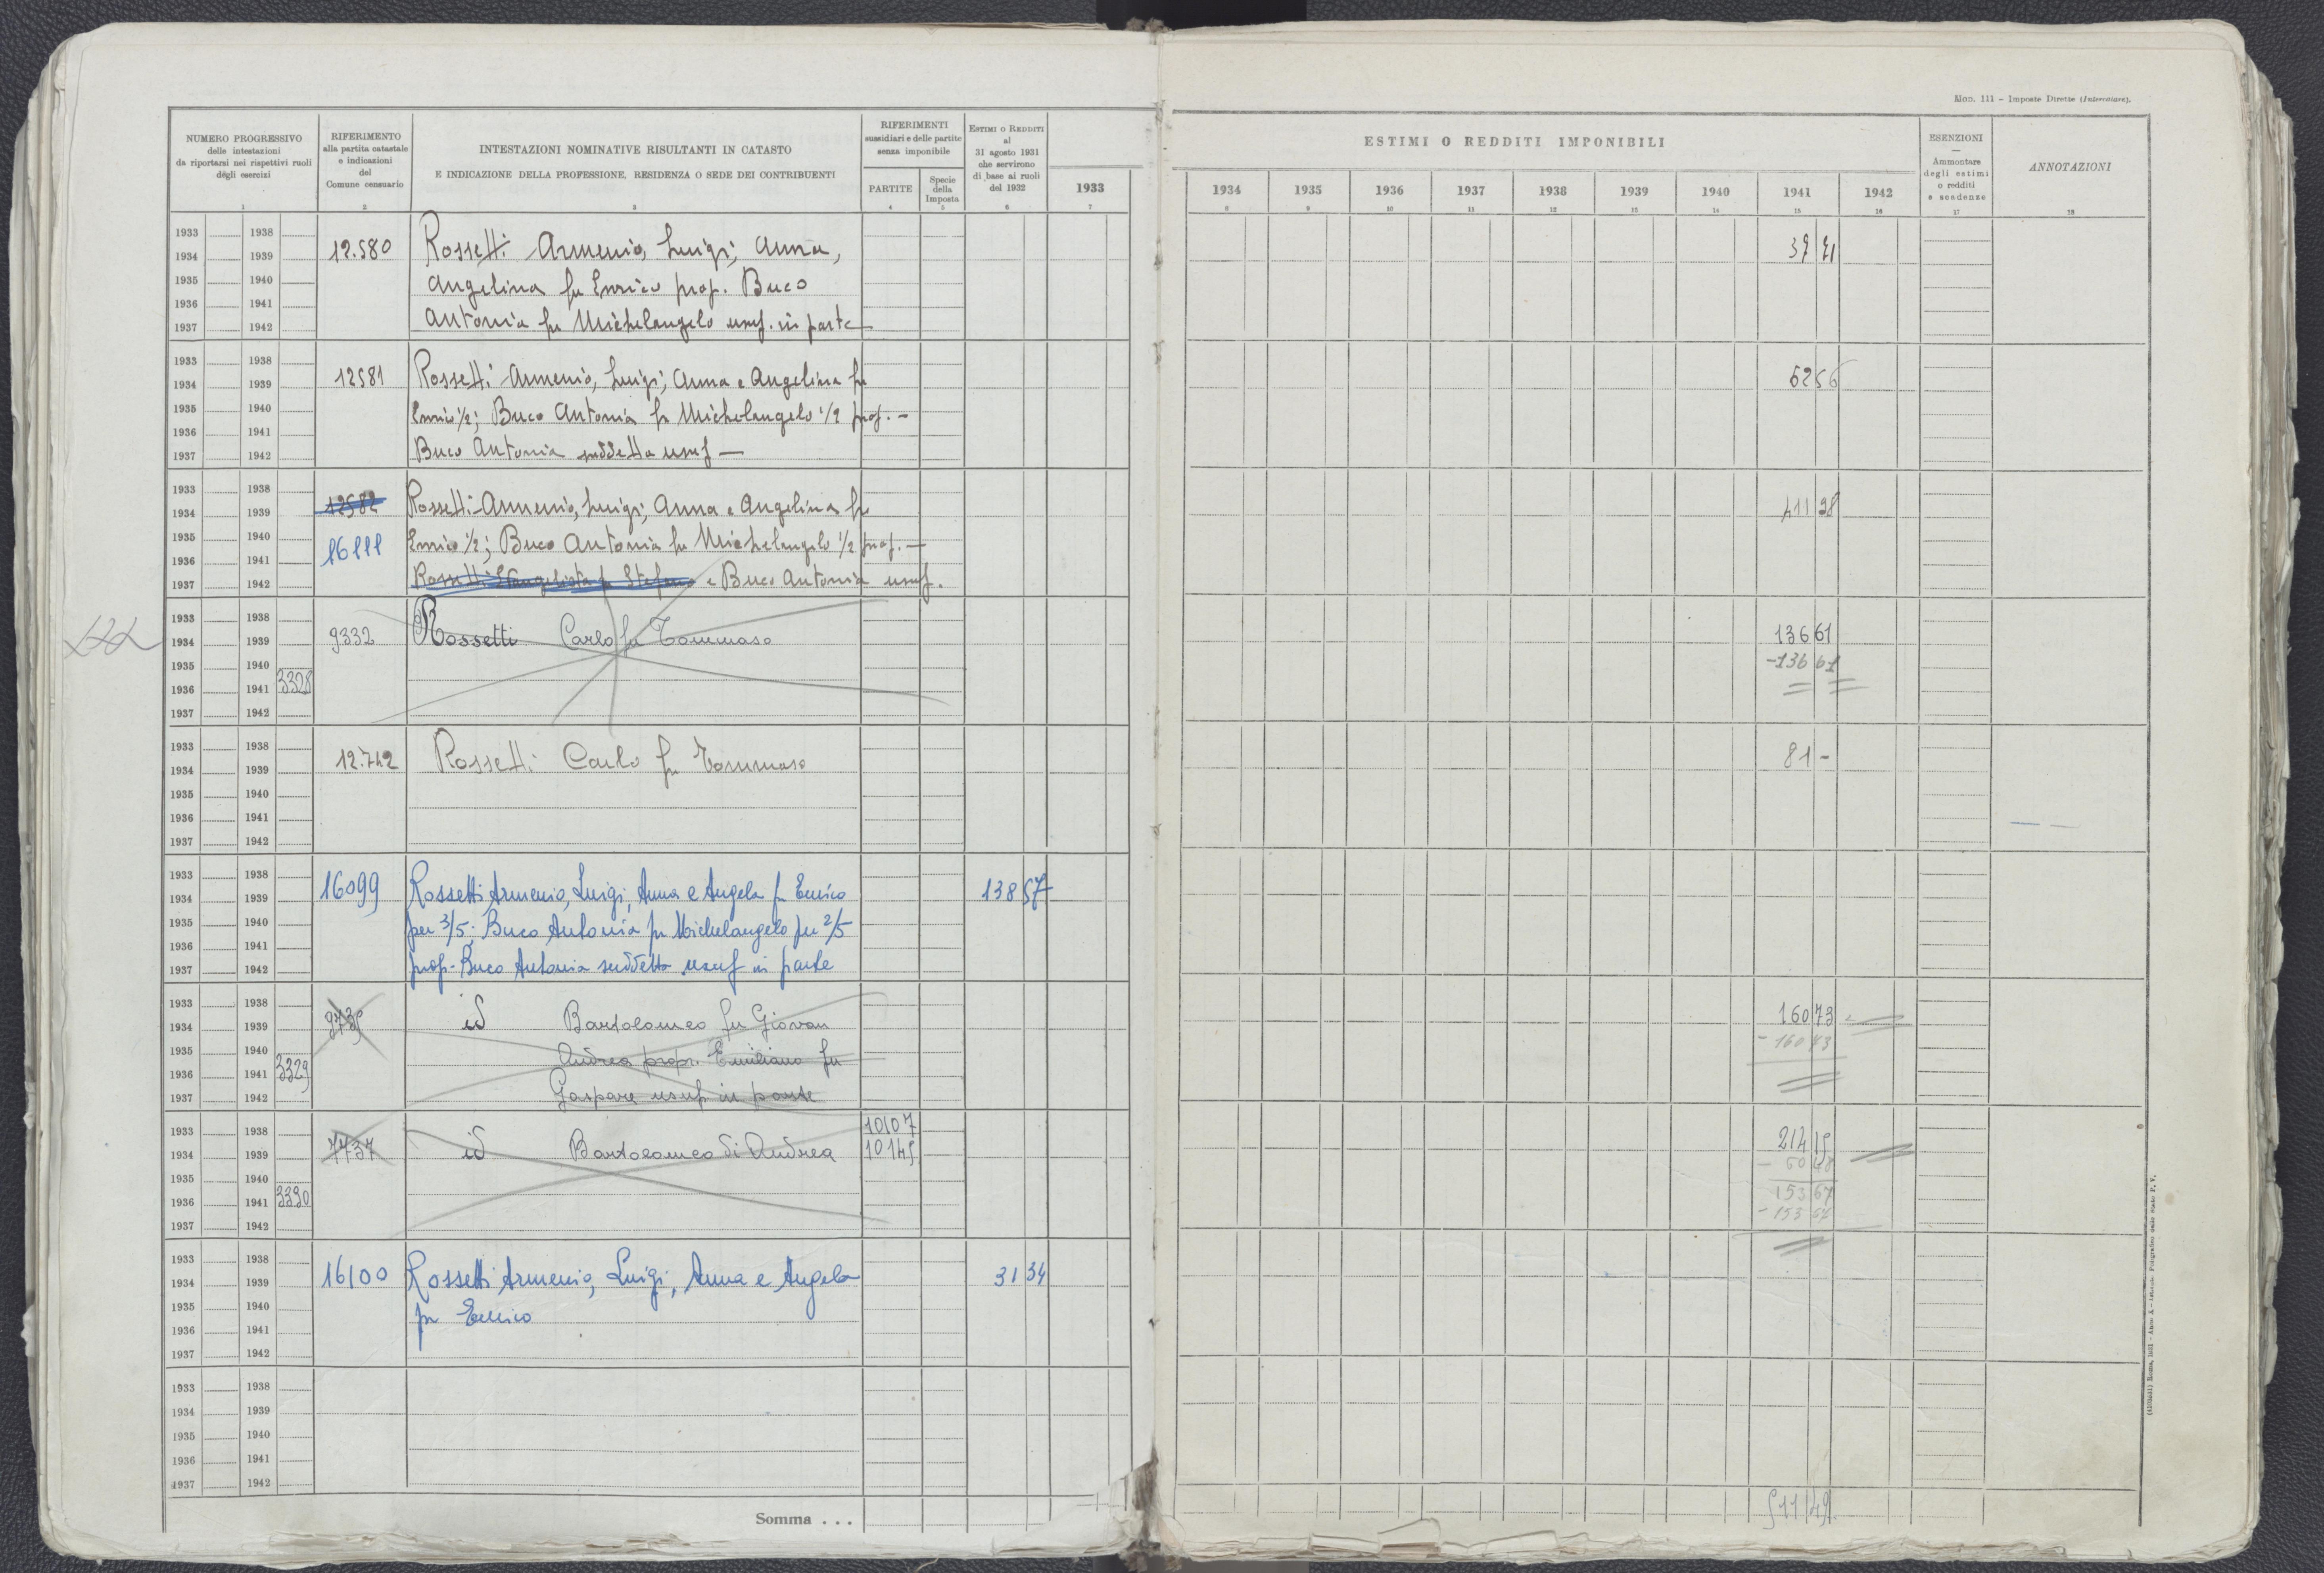 Mod. 111 – Imposte Dirette (Intercalare).
NUMERO PROGRESSIVO
delle intestazioni
da riportarsi nei rispettivi ruoli
degli esercizi
1
RIFERIMENTO
alla partita catastale
e indicazioni
del
Comune censuario
2
INTESTAZIONI NOMINATIVE RISULTANTI IN CATASTO
E INDICAZIONE DELLA PROFESSIONE, RESIDENZA O SEDE DEI CONTRIBUENTI
3
RIFERIMENTI
sussidiari e delle partite
senza imponibile
PARTITE
4
Specie
della
Imposta
5
ESTIMI O REDDITI
al
31 agosto 1931
che servirono
di base ai ruoli
del 1932
6
1933
7
ESTIMI O REDDITI IMPONIBILI
1934 1935 1936 1937 1938 1939 1940 1941 1942
8 9 10 11 12 13 14 15 16
ESENZIONI
—
Ammontare
degli estimi
o redditi
e scadenze
17
ANNOTAZIONI
18
1933 1938
1934 1939
1935 1940
1936 1941
1937 1942
12.580
Rossetti Armenio, Luigi, Anna,
Angelina fu Enrico prop. Buco
Antonia fu Michelangelo usuf. in parte
1933 1938
1934 1939
1935 1940
1936 1941
1937 1942
12581
Rossetti Armenio, Luigi, Anna e Angelina fu
Enrico 1/2; Buco Antonia fu Michelangelo 1/2 prop. –
Buco Antonia suddetta usuf –
52 56
1933 1938
1934 1939
1935 1940
1936 1941
1937 1942
12582
16111
Rossetti Armenio, Luigi, Anna e Angelina fu
Enrico 1/2; Buco Antonia fu Michelangelo 1/2 prop. –
Rossetti Evangelista fu Stefano e Buco Antonia usuf.
1933 1938
1934 1939
1935 1940
1936 1941 3328
1937 1942
9332
Rossetti Carlo fu Tommaso
136 61
-136 61
1933 1938
1934 1939
1935 1940
1936 1941
1937 1942
12.742
Rossetti Carlo fu Tommaso
81 –
1933 1938
1934 1939
1935 1940
1936 1941
1937 1942
16099
Rossetti Armenio, Luigi, Anna e Angela fu Enrico
per 3/5; Buco Antonia fu Michelangelo per 2/5
prop- Buco Antonia suddetta usuf in parte
138 57
1933 1938
1934 1939
1935 1940
1936 1941 3329
1937 1942
id Bartolomeo fu Giovan
Andrea propr. Emiliano fu
Gaspare usuf in parte
160 73
- 160 73
1933 1938
1934 1939
1935 1940
1936 1941 3330
1937 1942
7737
id Bartolomeo di Andrea
10107
10145
214 15
- 60 48
153 67
- 153 67
1933 1938
1934 1939
1935 1940
1936 1941
1937 1942
16100
Rossetti Armenio, Luigi, Anna e Angela
fu Enrico
31 34
1933 1938
1934 1939
1935 1940
1936 1941
1937 1942
Somma . . .